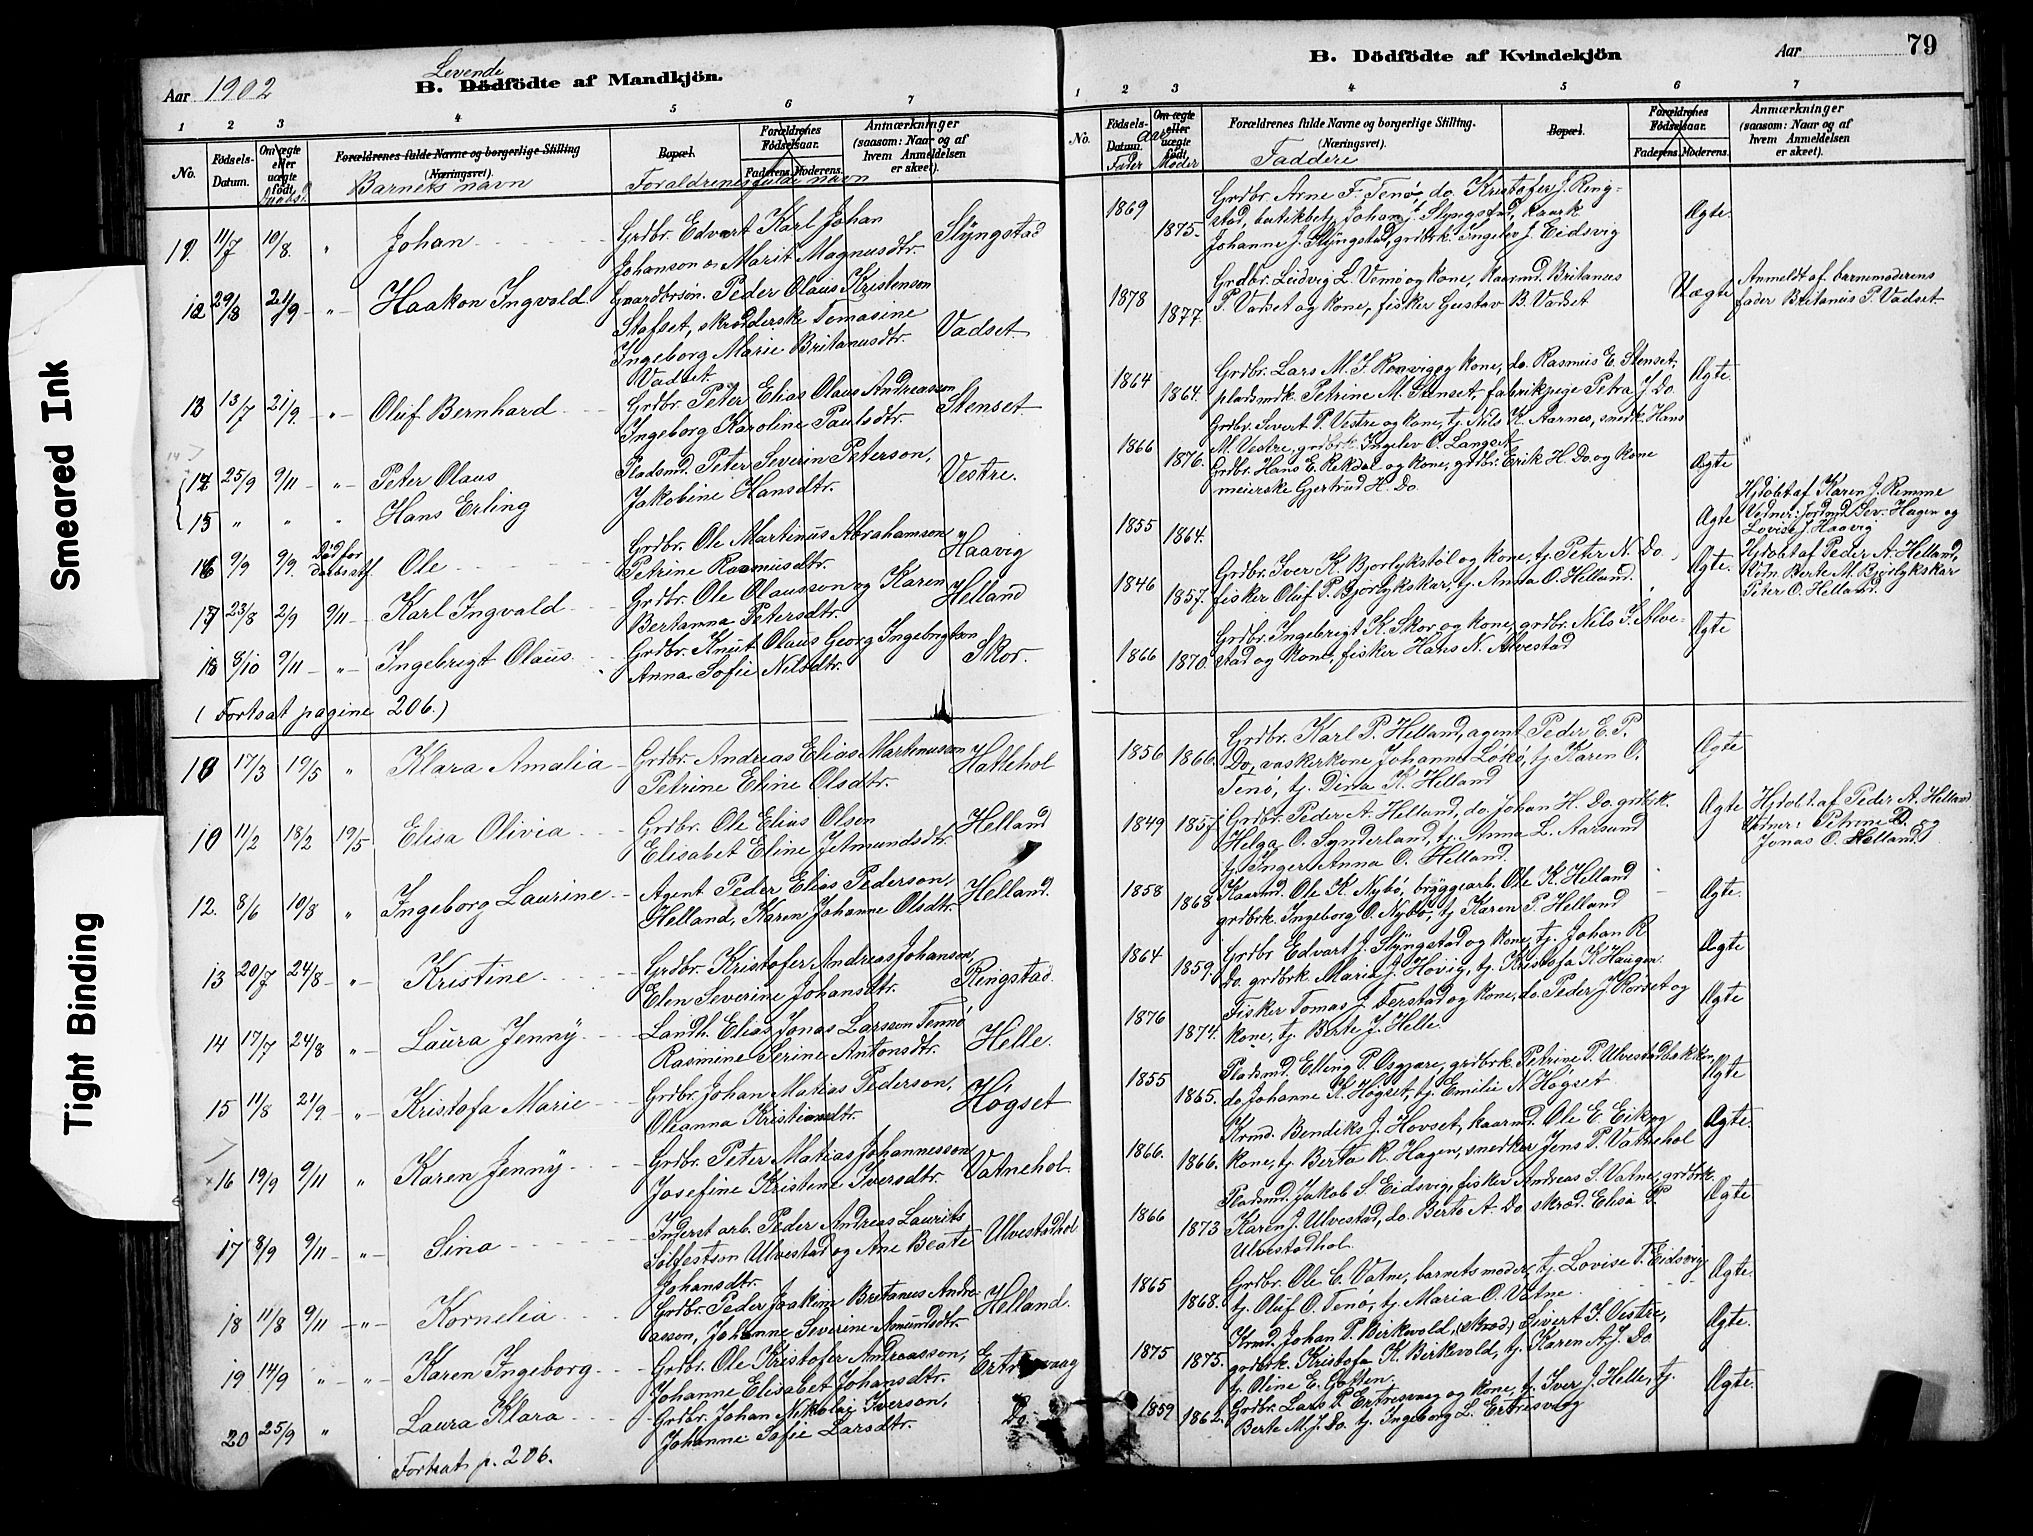 Smeared Ink
Tight Binding
Aar 1902
Levende
B. Dödfödte af Mandkjön.
1 2 3 4 5 6 7
No.
Födsels-Datum.
Om ægte eller uægte födt.
Forældrenes fulde Navne og borgerlige Stilling
(Næringsvei).
Barnets navn
Bopæl.
Forældrenes fulde navn
Forældrenes Födselsaar.
Faderens. Moderens.
Anmærkninger
(saasom: Naar og af
hvem Anmeldelsen
er skeet).
11. 11/7 10/8. " Johan Grdbr. Edvart Karl Johan
Johanson og Marit Magnusdtr. Slyngstad
12 29/8 21/9 - " - Haakon Ingvald Gaardbrsøn. Peder Olaus Kristenson
Stafset, skrædderske Tomasine
Ingeborg Marie Britanusdtr. Vadset.
Vadset
13 13/7 21/9. - " - Oluf Bernhard Grdbr. Peter Elias Olaus Andreasson
Ingeborg Karoline Paulsdtr. Stenset
14 25/9 9/11 - " - Peter Olaus Pladsmd. Peter Severin Peterson,
15 " " " Hans Erling Jakobine Hansdtr. Vestre.
16 9/9 9/9. Død før Ole Grdbr. Ole Martinus Abrahamson
Petrine Rasmusdtr. Haavig
17 23/8 2/9 9/11 - Karl Ingvald Grdbr. Ole Olausson og Karen
Bertanna Petersdtr. Helland
18 8/10 9/11 - " - Ingebrigt Olaus Grdbr. Knut Olaus Georg Ingebrigtson
Anna Sofie Nilsdtr. Skor.
( Fortsat pagine 206.)
10 17/3 19/5 " Klara Amalia Grdbr. Andreas Elias Martinusson
Petrine Eline Olsdtr. Hattehol
10 11/2 18/2 19/5 - Elisa Olivia Grdbr. Ole Elias Olson
Elisabet Eline J. Amundsdtr. Helland
12. 8/6 10/8 " Ingeborg Laurine Agent Peder Elias Pederson,
Helland, Karen Johanne Olsdtr. Helland.
13 20/7 24/8 - " - Kristine Grdbr. Kristofer Andreas Johanson,
Elen Severine Johansdtr. Ringstad.
14 17/7 24/8 " - Laura Jenny Landh. Elias Jonas Larsson Tennø
Rasmine Serine Antonsdtr. Helle.
15 11/8 21/9 - " Kristofa Marie Grdbr. Johan Matias Pederson,
Oleanna Kristiansdtr. Høgset
16 19/9 9/11 " Karen Jenny Grdbr. Peter Matias Johannesson
Josefine Kristene Iversdtr. Vatnehol.
17 8/9 9/11 - " - Sina Inderst arb. Peder Andreas Laurits
Solfestson Ulvestad og Ane Beate Ulvestadhol
Johansdtr.
18 11/8 9/11 - " - Kornelia Grdbr. Peder Joakim Bretanus Andre-
asson, Johanne Severine Amundsdtr. Helland.
19 14/9 " - " - Karen Ingeborg Grdbr. Ole Kristofer Andreasson,
Johanne Elisabet Johansdtr. Ertresvaag
20 25/9 " Laura Klara Grdbr. Johan Nikolai Iverson,
Johanne Sofie Larsdtr. Do.
Fortsat p. 206.
B. Dödfödte af Kvindekjön
Aar 79
1 2 3 4 5 6 7
No.
Födsels-Datum.
Om ægte eller uægte födt.
Aar
Fader Moder
Forældrenes fulde Navne og borgerlige Stilling.
(Næringsvei).
Faddere
Bopæl.
Forældrenes Födselsaar.
Faderens. Moderens.
Anmærkninger
(saasom: Naar og af
hvem Anmeldelsen
er skeet).
1869 1875. Grdbr. Arne F. Tenø, do. Kristofer J. Ring-
stad, butikbetj. Johan J. Slyngstad, kaark.
Johanne J. Slyngstad, grdbrk. Ingelev J. Eidsvig Ægte.
1878 1877. Grdbr. Leidvig L. Vemø og kone, kaarmd. Britanus
P. Vadset og kone, fisker Gustav B. Vadset Uægte Anmeldt af barnemoderens
fader Britanus P. Vadset
1864 1864. Grdbr. Lars M. F. Rønvig og kone, do. Rasmus E. Stenset,
pladsmdk. Petrine M. Stenset, fabrikpige Petra J. Do. Ægte
1866 1876. Grdbr. Sivert P. Vestre og kone, tj. Nils K. Aarnes, snedk. Hans
M. Vestre, grdbrk. Ingelev O. Langset
Grdbr. Hans E. Rekdal og kone, grdbr. Erik H. Do. og kone
meierske Gjertrud H. Do. Ægte
1855 1864. Ægte Hjdøbt af Karen J. Remme
Vidner: Jordmd. Sev. Hagen og
Lovise J. Haavig
1846 1857. Grdbr. Iver K. Bjorlykstøl og kone, tj. Peter N. Do.,
fisker Oluf P. Bjorlykskar, tj. Anna O. Helland. Ægte. Hjdøbt af Peder A. Helland,
Vidn. Berte M. Bjorlykskar
Peter O. Helland.
1866 1870. Grdbr. Ingebrigt K. Skor og kone, grdbr. Nils S. Alve-
stad og kone, fisker Hans N. Alvestad Ægte
1856 1866. Grdbr. Karl P. Helland, agent Peder E. P.
Do, vaskerkone Johanne Løkø, tj. Karen O.
Tenø, tj. Dina K. Helland Ægte
1849 1857. Grdbr. Peder A. Helland, do. Johan H. Do. grdbrk.
Helga O. Synderland, tj. Anna L. Aarsund
tj. Inger Anna O. Helland. Ægte Hjdøbt af Peder A. Helland
Vidner: Petrine D. og
Jonas O. Helland
1858 1868 Kaarmd. Ole K. Nybø, bryggearb. Ole K. Helland
grdbrk. Ingeborg O. Nybø, tj. Karen P. Helland Ægte.
1864 1859. Grdbr Edvart J. Slyngstad og kone, tj. Johan R
Do. grdbrk. Maria J. Hovig, tj. Kristofa K Haugen. Ægte
1876 1874. Fisker Tomas J. Terstad og kone, do. Peder J. Rørset og
kone, tj. Berte J. Helle. Ægte
1855 1865. Pladsmd. Elling P. Osgjare, grdbrk. Petrine P. Ulvestadbakken,
do Johanne K. Høgset, tj. Emilie N. Høgset Ægte
1866. 1866. Krmd. Bendiks J. Hovset, kaarmd. Ole E. Eik og
kone, tj. Berta R. Hagen, snedker Jens P. Vatnehol Ægte.
1866 1873 Pladsmd. Jakob S. Eidsvig, fisker Andreas S. Vatne, grdbrk.
Karen J. Ulvestad, do. Berte A. Do skræd. Elisa P.
Ulvestadhol. Ægte
1865 1868. Grdbr. Ole C. Vatne, barnets moder, tj. Lovise P. Eidsvig
tj. Oluf O. Tenø, tj. Maria O. Vatne. Ægte.
1875 1875. Krmd. Johan P. Birkevold, (skræd.) Sivert S. Vestre,
grdbrk. Kristofa K. Birkevold, tj. Karen A. J. Do
tj. Oline E. Gotten. Ægte.
1859 1862. Grdbr. Lars P. Ertresvaag og kone, tj. Iver J. Helle, tj.
Berte M. J. Do. tj. Ingeborg L. Ertresvaag Ægte.